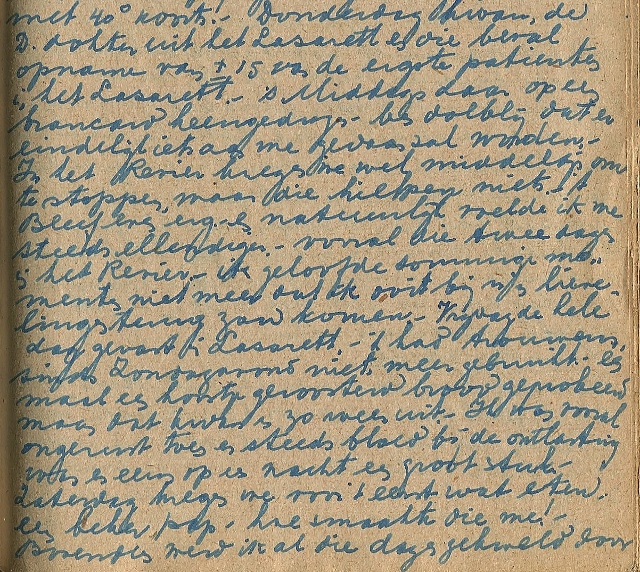 met 40° koorts.- Donderdag kwam de
D. dokter uit het Lazarett en die beval
opname van ± 15 van de ergste patienten
in het Lazarett.- 's Middags daar op een
brancard heengedragen - ben dolblij dat er
eindelijk iets aan me gedaan zal worden.-
In het Revier kregen we wel middelen om
te stoppen, maar die hielpen niets.
Bleef en natuurlijk voelde ik me
steeds ellendiger.- vooral die twee dagen
in het Revier.- ik geloofde sommige mo-
menten niet meer dat ik ooit bij m'n lieve-
lingen terug zou komen.- Vrijdag de hele
dag gewacht in Lazarett.- 'k had trouwens
sinds Zondagavond niet meer gebruikt. een
maal een korstje geroosterd brood geprobeerd
maar dat kwam er zo weer uit.- Ik was vooral
ongerust toen er steeds bloed bij de ontlasting
was en eens op een nacht een groot stuk.-
Zaterdag kregen we voor 't eerst wat eten.
een beker pap.- hoe smaakte die me!-
Bovendien werd ik al die dagen gekweld door